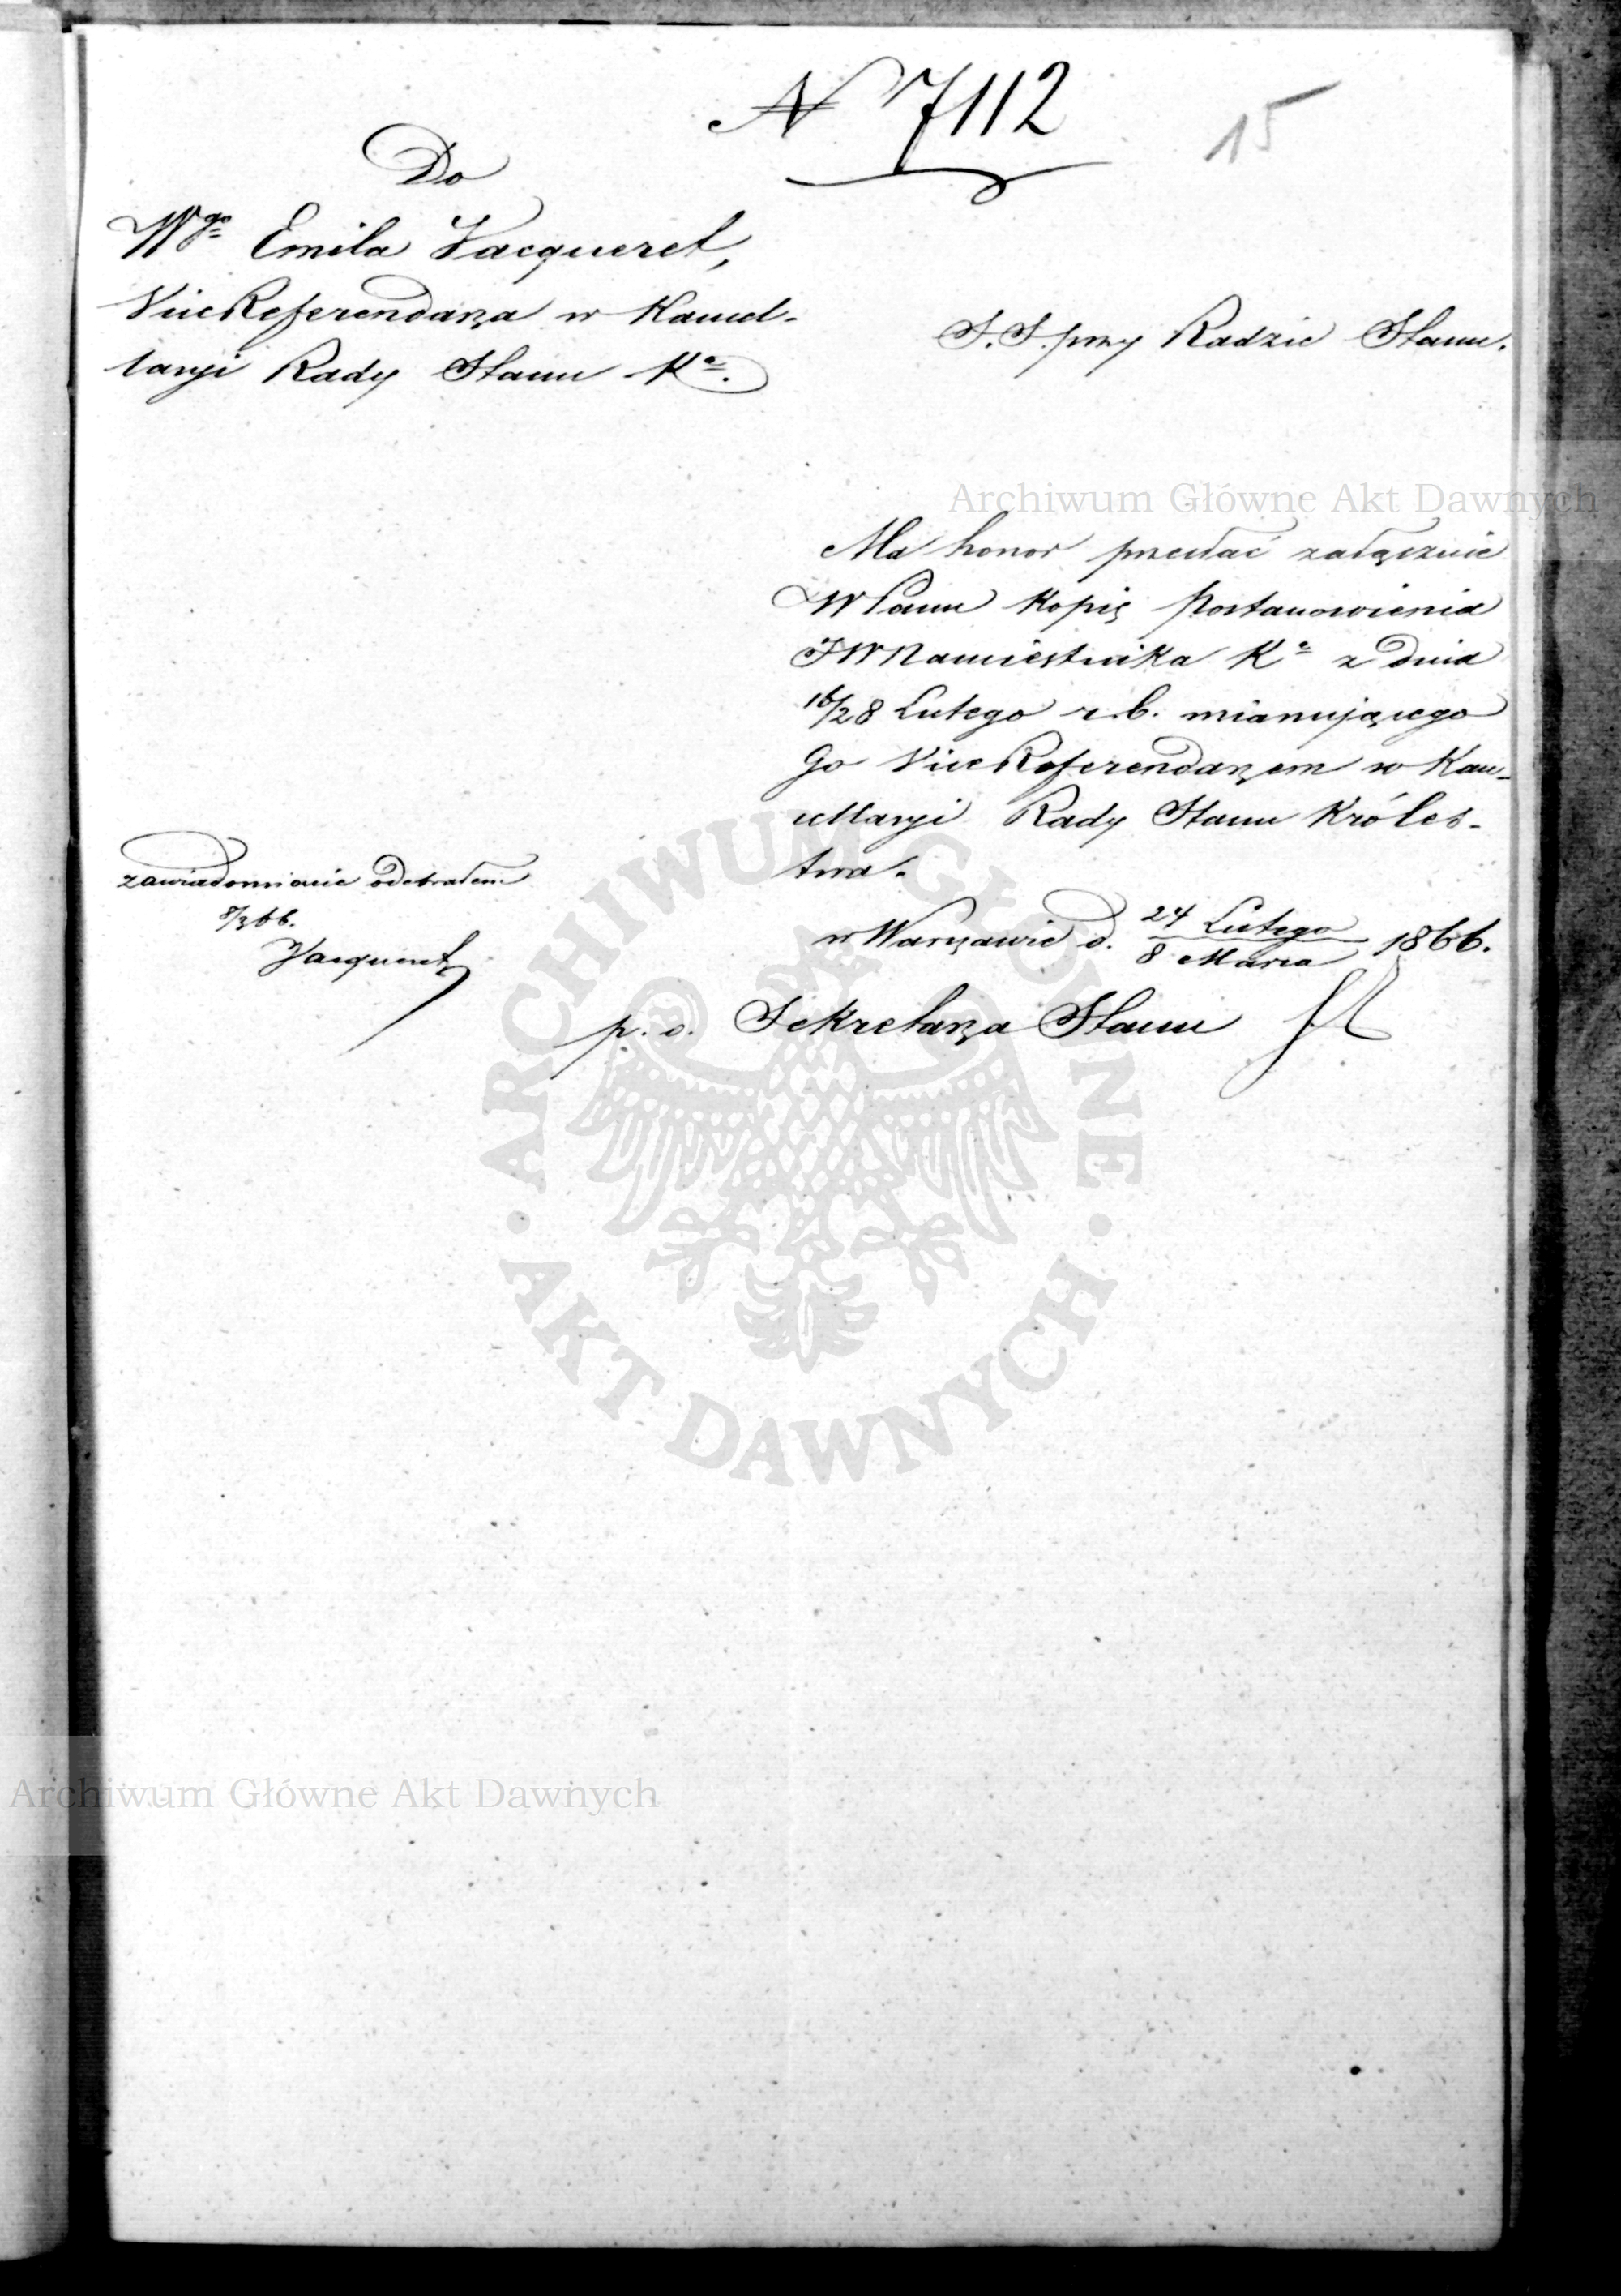 N 7112
15
Do
Wgo Emila Vacqueret,
ViceReferendarza w Kancel-
laryi Rady Stanu Ka.
S. S. przy Radzie Stanu.
Archiwum Główne Akt Dawnych
Ma honor przesłać załącznie
WPanu kopię Postanowienia
JWNamiestnika Ka z dnia
16/28 Lutego r. b. mianującego
Go ViceReferendarzem w Kan-
cellaryi Rady Stanu Króles-
twa.
zawiadomienie odebrałem
8/3 66.
Vacqueret
w Warszawie d. 24 Lutego / 8 Marca 1866.
p. o. Sekretarza Stanu
ARCHIWUM GŁÓWNE AKT DAWNYCH
Archiwum Główne Akt Dawnych